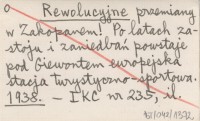 Rewolucyjne przemiany
w Zakopanem! Po latach za-
stoju i zaniedbań powstaje
pod Giewontem europejska
stacja turystyczno-sportowa.
1938. – IKC nr 235, il.